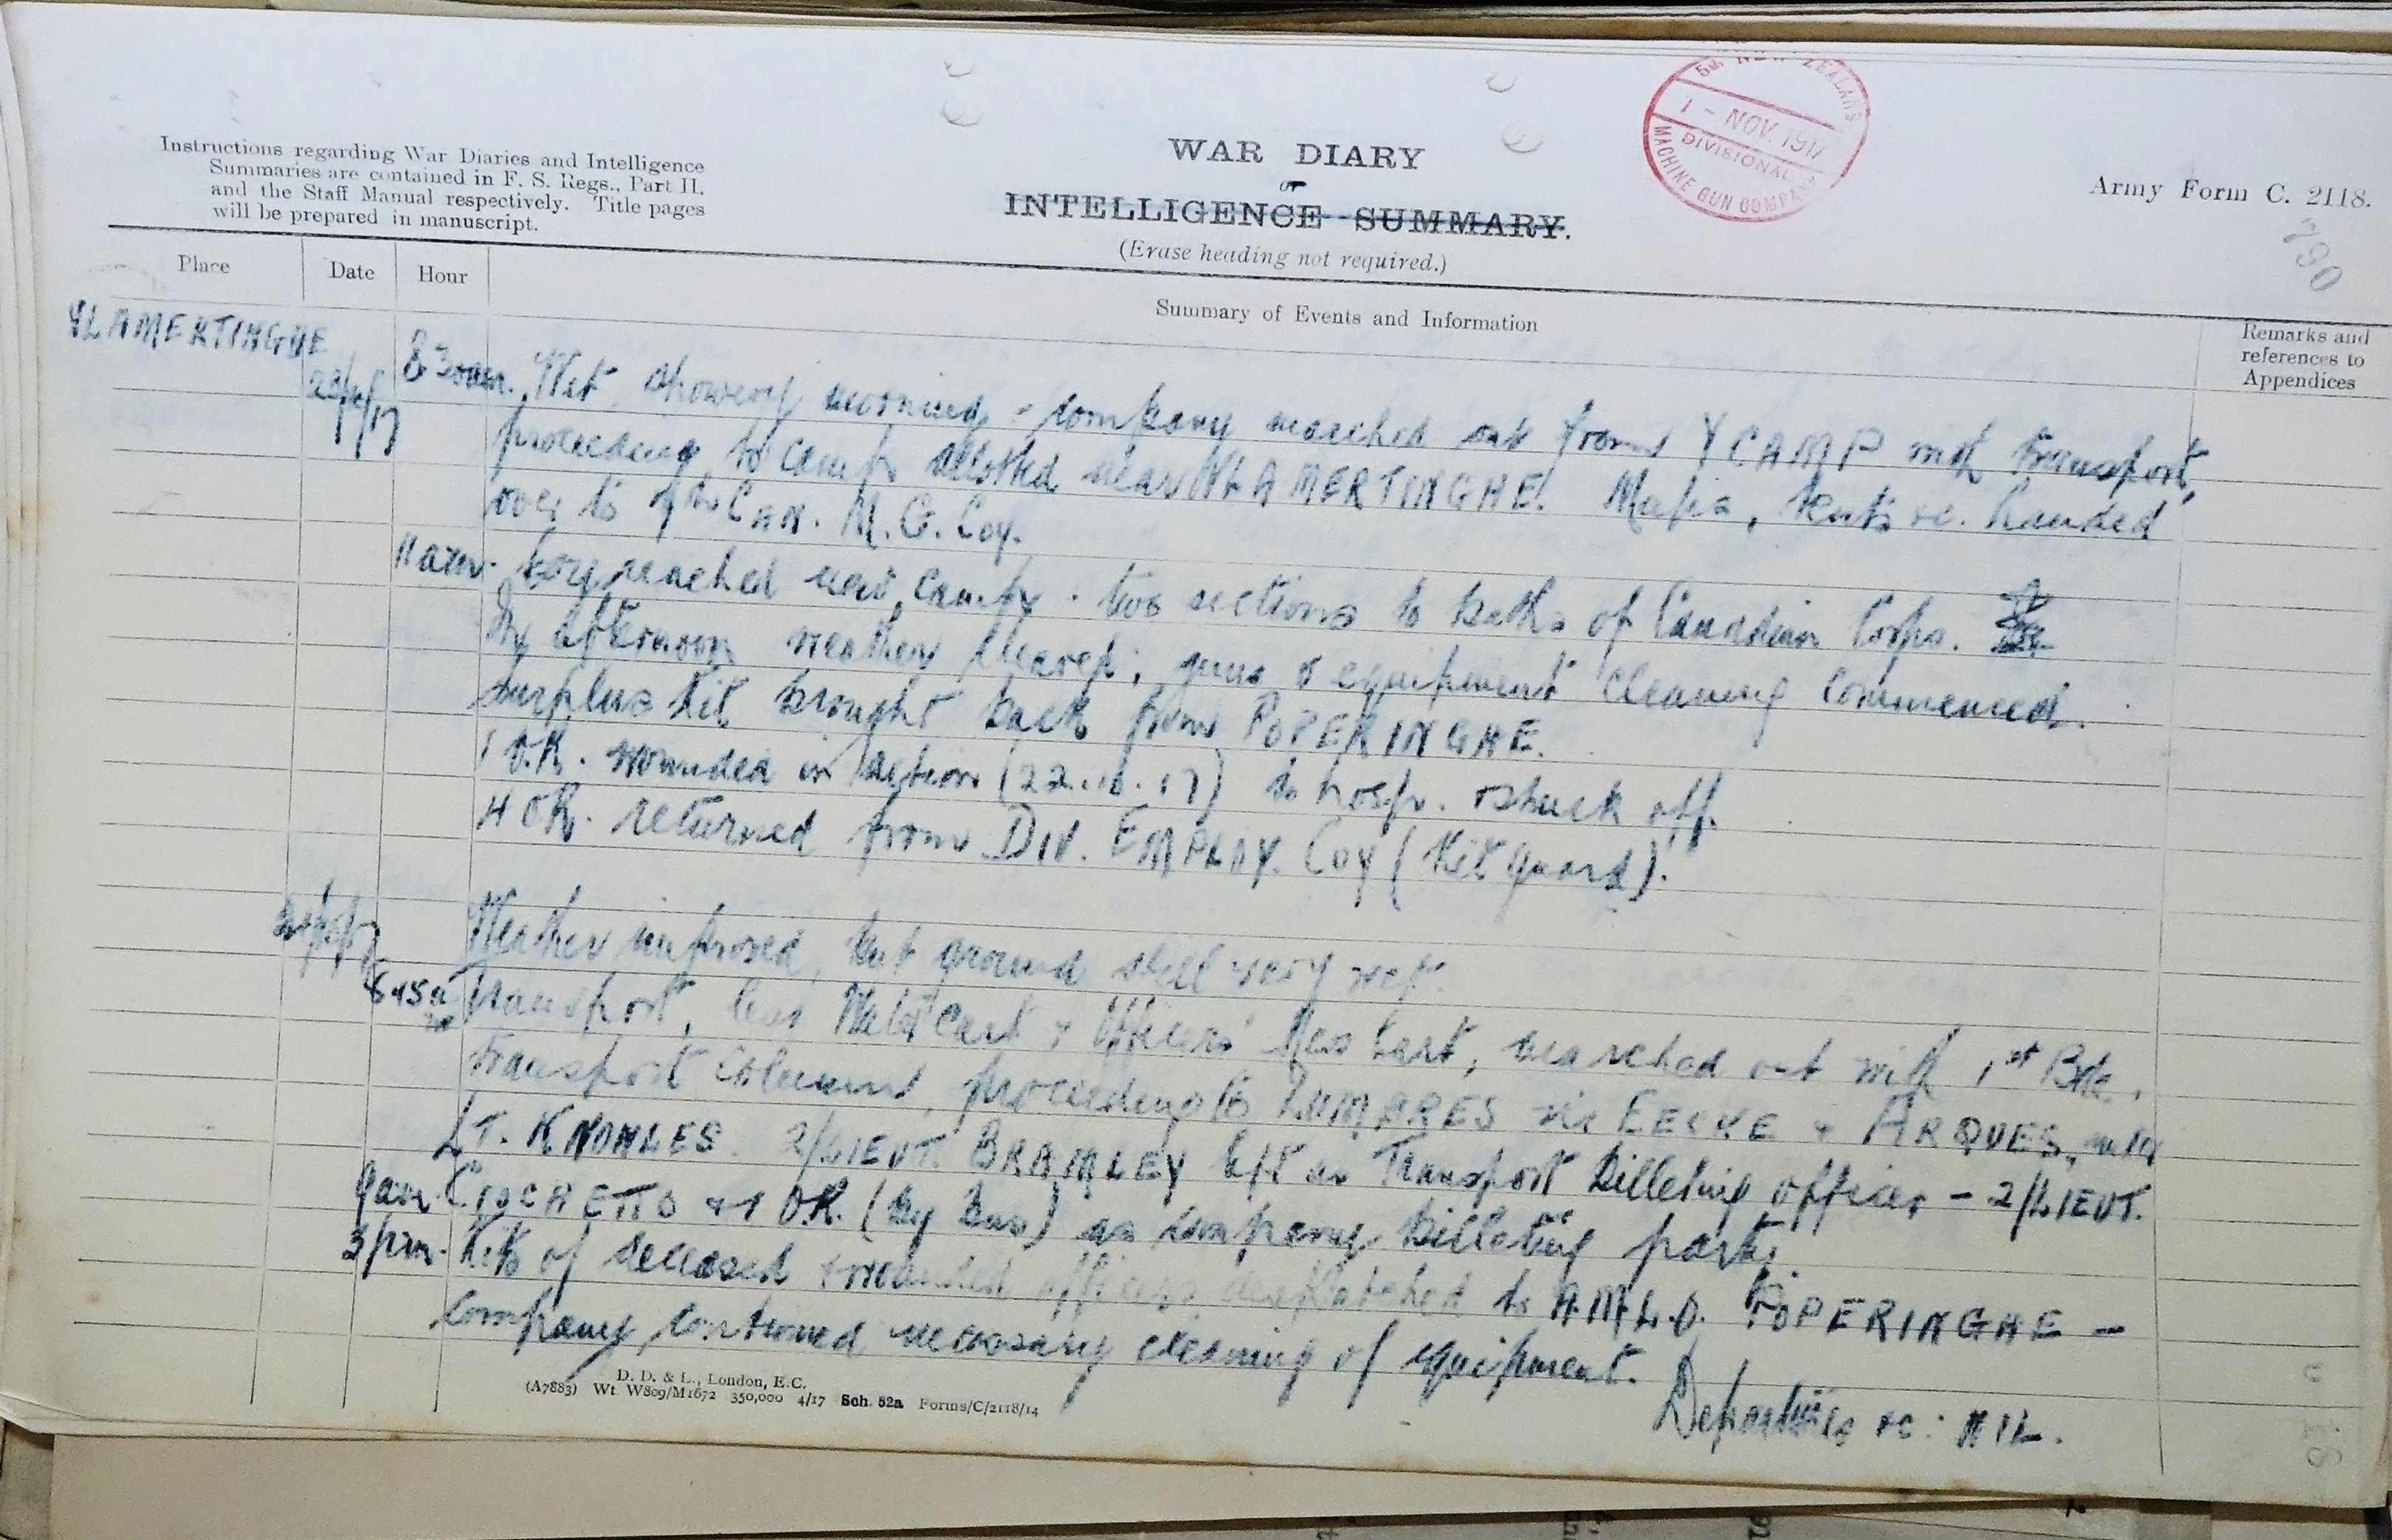 5th NEW ZEALAND
1 - NOV. 1917
DIVISIONAL
MACHINE GUN COMPANY
Instructions regarding War Diaries and Intelligence
Summaries are contained in F. S. Regs., Part II.
and the Staff Manual respectively. Title pages
will be prepared in manuscript.
WAR DIARY
or
INTELLIGENCE SUMMARY.
(Erase heading not required.)
Army Form C. 2118.
790
Place
Date
Hour
Summary of Events and Information
Remarks and
references to
Appendices
VLAMERTINGHE
8.30am. Wet showery morning - company marched out from Y CAMP with transport,
proceeding to camp allotted near VLAMERTINGHE. Maps, tents &c. handed
over to 7th CAN. M.G. Coy.
11 am. Coy reached new camp. two sections to baths of Canadian Corps.
In afternoon weather cleared; guns & equipment cleaning commenced.
Surplus kit brought back from POPERINGHE.
1 O.R. wounded in action (22.10.17) to hosp. & struck off.
4 OR. returned from DIV. EMPLOY. Coy (Kit guard).
Weather improved, but ground still very wet.
8.45 am Transport, less Water Cart & Officers' Mess Cart, marched out with 1st Bde.
transport column, proceeding to LUMBRES via EECKE & ARQUES, with
LT. KNOWLES. 2/LIEUT. BRAMLEY left as Transport billeting officer - 2/LIEUT.
9am. CROCHETTO & 1 O.R. (by bus) as company billeting party.
3pm. Kits of deceased & wounded officers despatched to A.M.L.O. POPERINGHE -
Company continued necessary cleaning of equipment.
Departures &c: NIL.
D. D. & L., London, E.C.
(A7883) Wt. W809/M1672 350,000 4/17 Sch. 52a Forms/C/2118/14